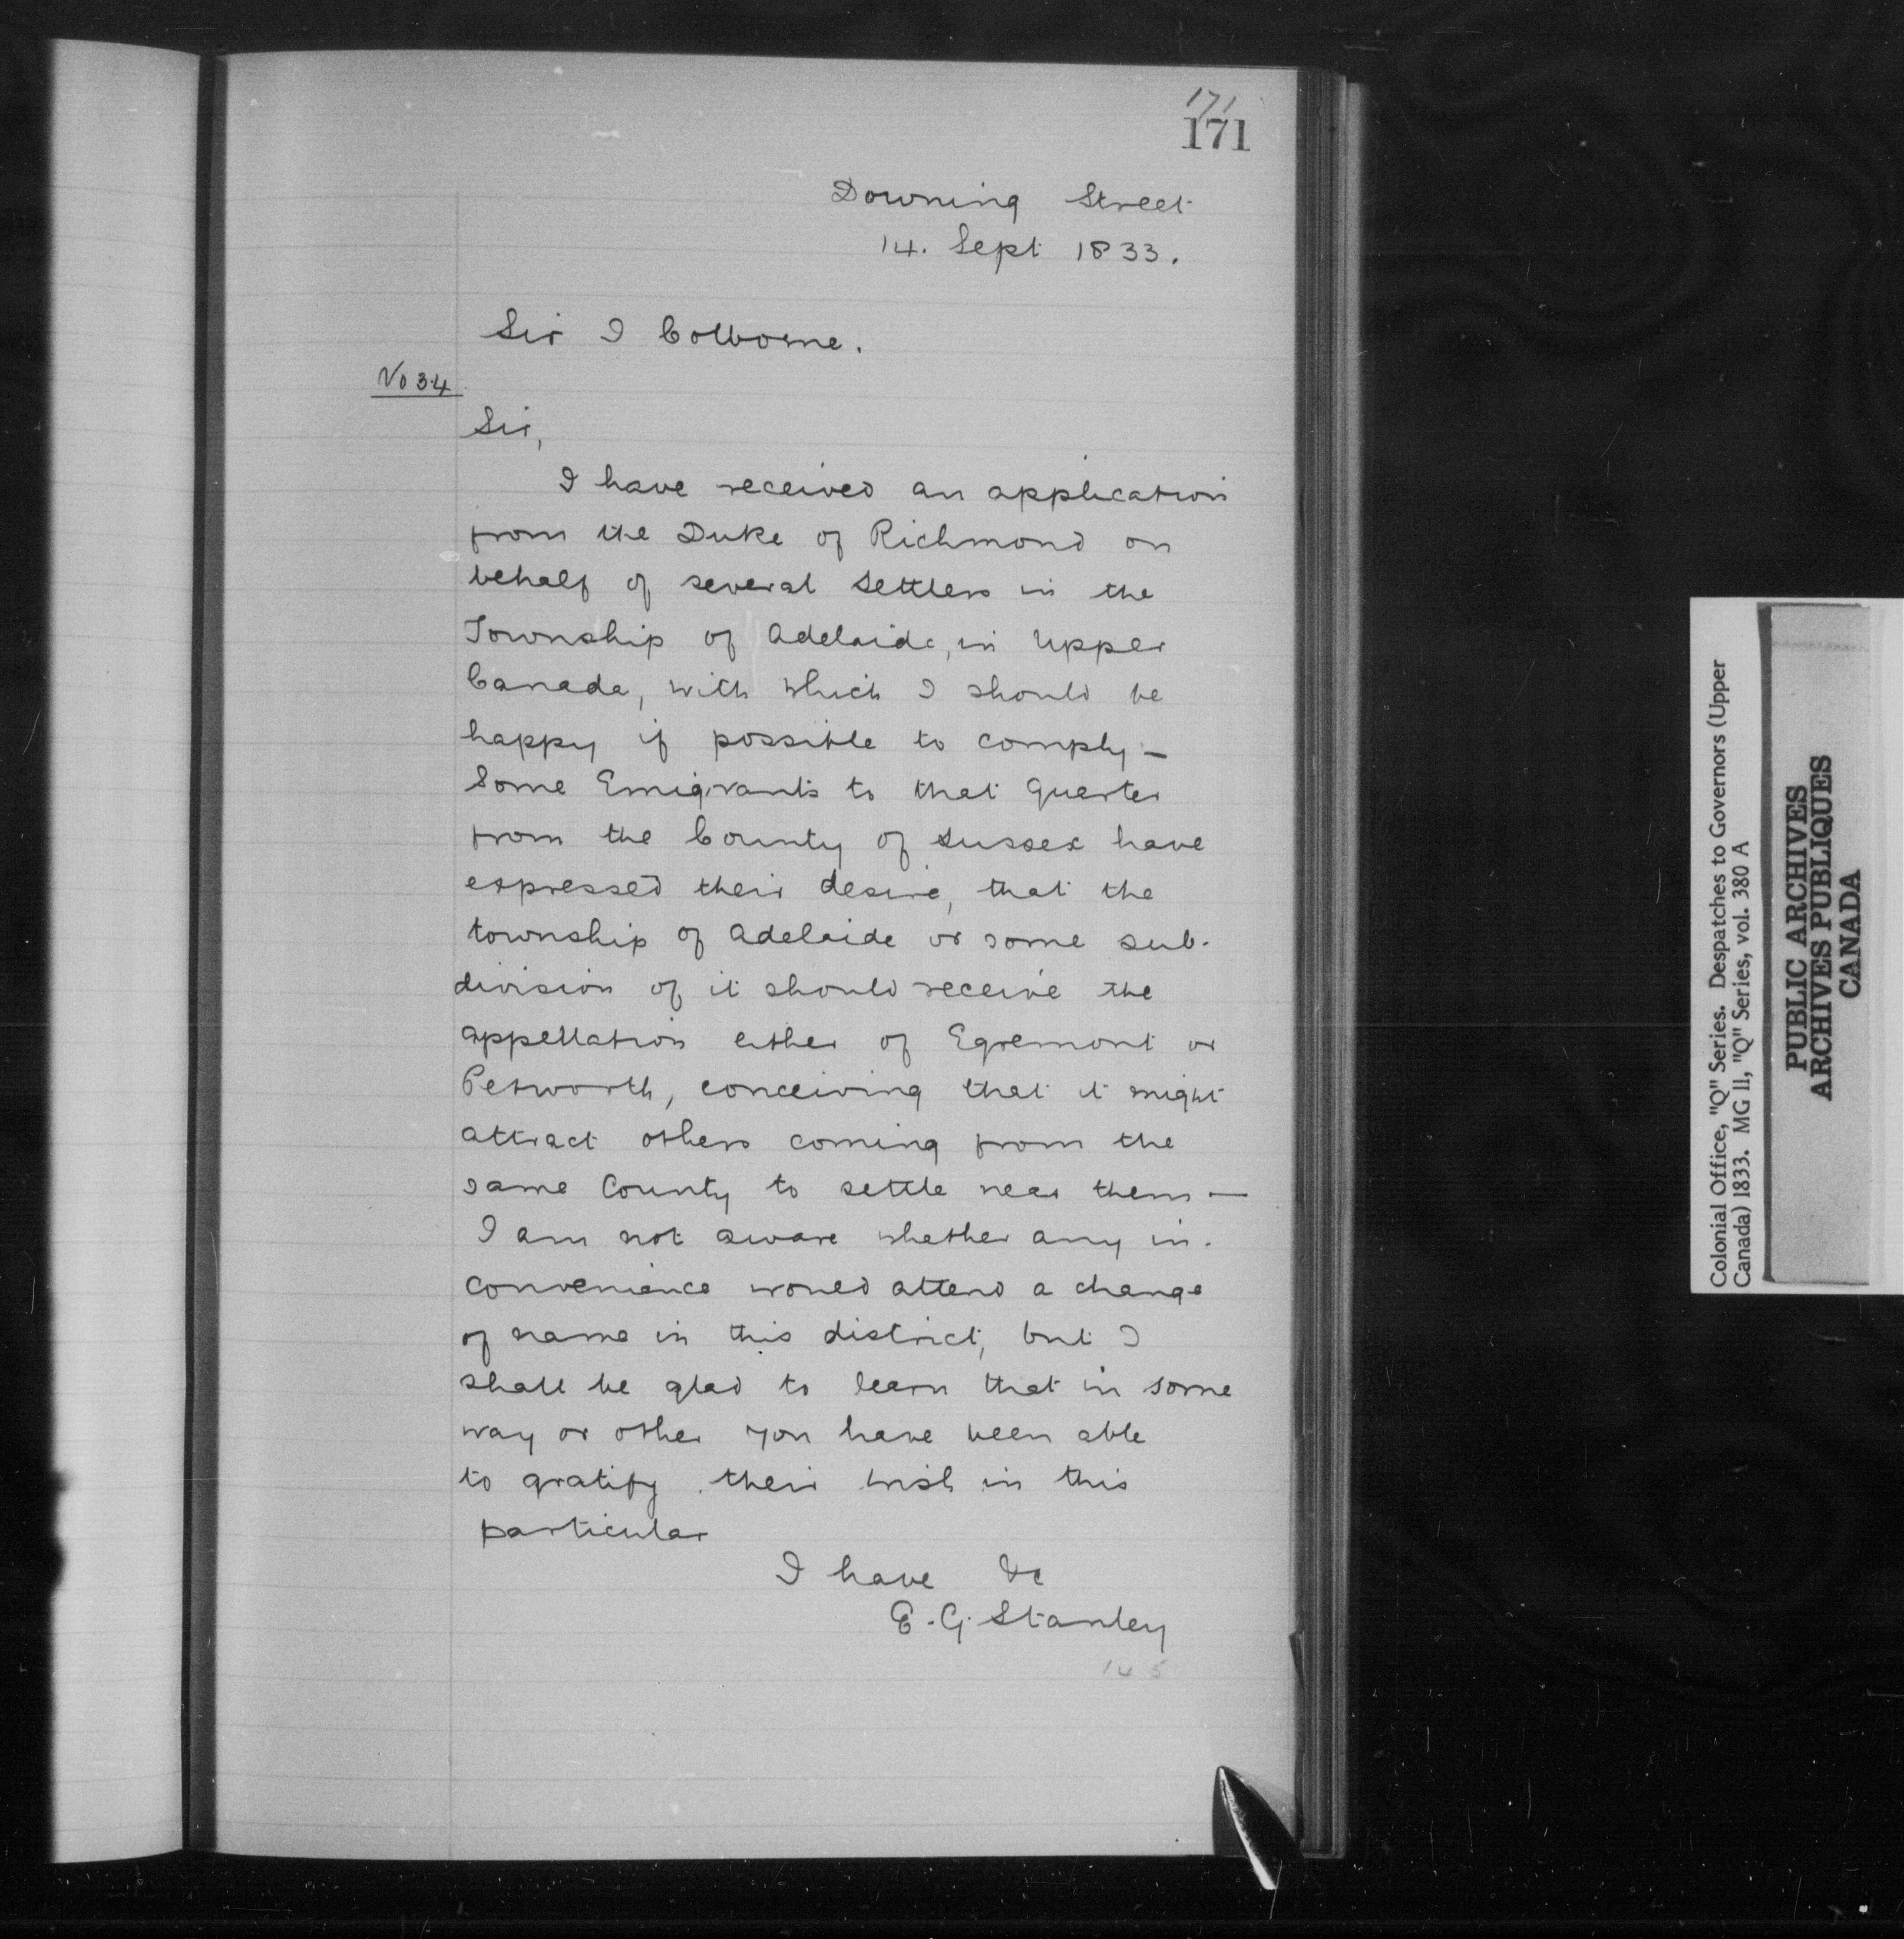 171
171
Downing Street
14. Sept 1833.
Sir J Colborne.
No 34
Sir,
I have received an application
from the Duke of Richmond on
behalf of several settlers in the
Township of Adelaide, in Upper
Canada, with which I should be
happy if possible to comply —
Some Emigrants to that Quarter
from the County of Sussex have
expressed their desire, that the
township of Adelaide or some sub-
division of it should receive the
appellation either of Egremont or
Petworth, conceiving that it might
attract others coming from the
same County to settle near them —
I am not aware whether any in-
convenience would attend a change
of name in this district, but I
shall be glad to learn that in some
way or other you have been able
to gratify their wish in this
particular
I have &c
E. G. Stanley
145
Colonial Office, "Q" Series. Despatches to Governors (Upper
Canada) 1833. MG 11, "Q" Series, vol. 380 A
PUBLIC ARCHIVES
ARCHIVES PUBLIQUES
CANADA